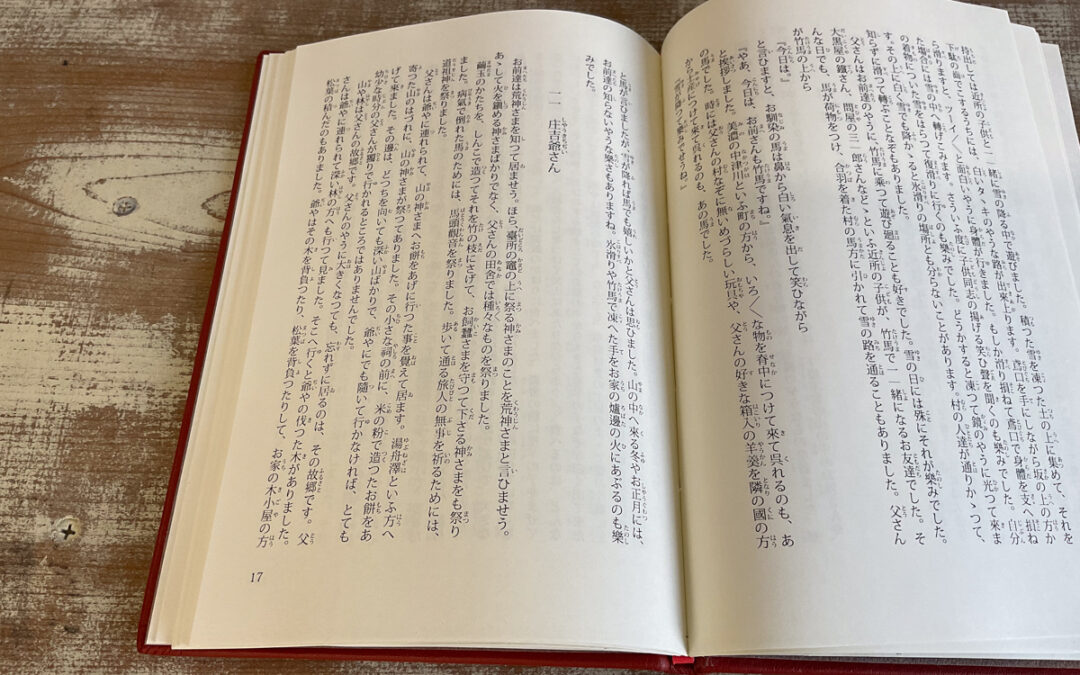 持出しては近所の子供と一緒に雪の降る中で遊びました。積つた雪を凍つた土の上に集めて、それを
下駄の歯でこするうちには、白いタヽキのやうな路が出來上ります。鳶口を手にしながら坂の上の方か
ら滑りますと、ツーイ〳〵と面白いやうに身體が行きました。もしか滑り損ねて鳶口で身體を支へ損ね
た塲合には雪の中へ轉げこみます。さういふ度に子供同志の揚げる笑ひ聲を聞くのも樂みでした。自分
の着物についた雪をはらつて復滑りに行くのも樂みでした。どうかすると凍つて鏡のやうに光つて來ま
す。その上に白く雪でも降かゝると氷滑りの塲所とも分らないことがあります。村の人達が通りかゝつて、
知らずに滑つて轉ぶことなぞもありました。
父さんはお前達のやうに、竹馬に乘つて遊び廻ることも好きでした。雪の日には殊にそれが樂みでした。そ
大黑屋の鐵さん、問屋の三郎さんなどゝといふ近所の子供が、竹馬で一緒になるお友達でした。父さん
んな日でも、馬が荷物をつけ、合羽を着た村の馬方に引かれて雪の路を通ることもありました。
が竹馬の上から
『今日は。』
と言ひますと、お馴染の馬は鼻から白い氣息を出して笑ひながら
『やあ、今日は、お前さんも竹馬ですね。』
と挨拶しました。美濃の中津川といふ町の方から、いろ〳〵な物を脊中につけて來て呉れるのも、あ
の馬でした。時には父さんの村なぞに無いめづらしい玩具や、父さんの好きな箱入の羊羹を隣の國の方
から土産につけて來て呉れるのも、あの馬でした。
と馬が言ひましたが、雪が降れば馬でも嬉しいかと父さんは思ひました。山の中へ來る冬やお正月には、
お前達の知らないやうな樂さもありますね。氷滑りや竹馬で凍へた手をお家の爐邊の火にあぶるのも樂
みでした。
一一 庄吉爺さん
お前達は荒神さまを知つて居ませう。ほら、臺所の竈の上に祭る神さまのことを荒神さまと言ひませう。
あゝして火を鎭める神さまばかりでなく、父さんの田舍では種々なものを祭りました。
繭玉のかたちを、しんこで造つてそれを竹の枝にさげて、お飼蠶さまを守つて下さる神さまをも祭り
ました。病氣で倒れた馬のためには、馬頭觀音を祭りました。歩いて通る旅人の無事を祈るためには、
道祖神を祭りました。
父さんは爺やに連れられて、山の神さまへお餅をあげに行つた事を覺えて居ます。湯舟澤といふ方へ
寄つた山のはづれに、山の神さまが祭つてありました。その小さな祠の前に、米の粉で造つたお餅をあ
げて來ました。その邊は、どつちを向いても深い山ばかりで、爺やにでも隨いて行かなければ、とても
幼少な時分の父さんが獨りで行かれるところではありませんでした。
山や林は父さんの故郷です。父さんのやうに大きくなつても、忘れずに居るのは、その故郷です。父
さんは爺やに連れられて深い林の方へも行つて見ました。そこへ行くと爺やの伐つた木がありました。
松葉の積んだのもありました。爺やはその木を背負つたり、松葉を背負つたりして、お家の木小屋の方
17